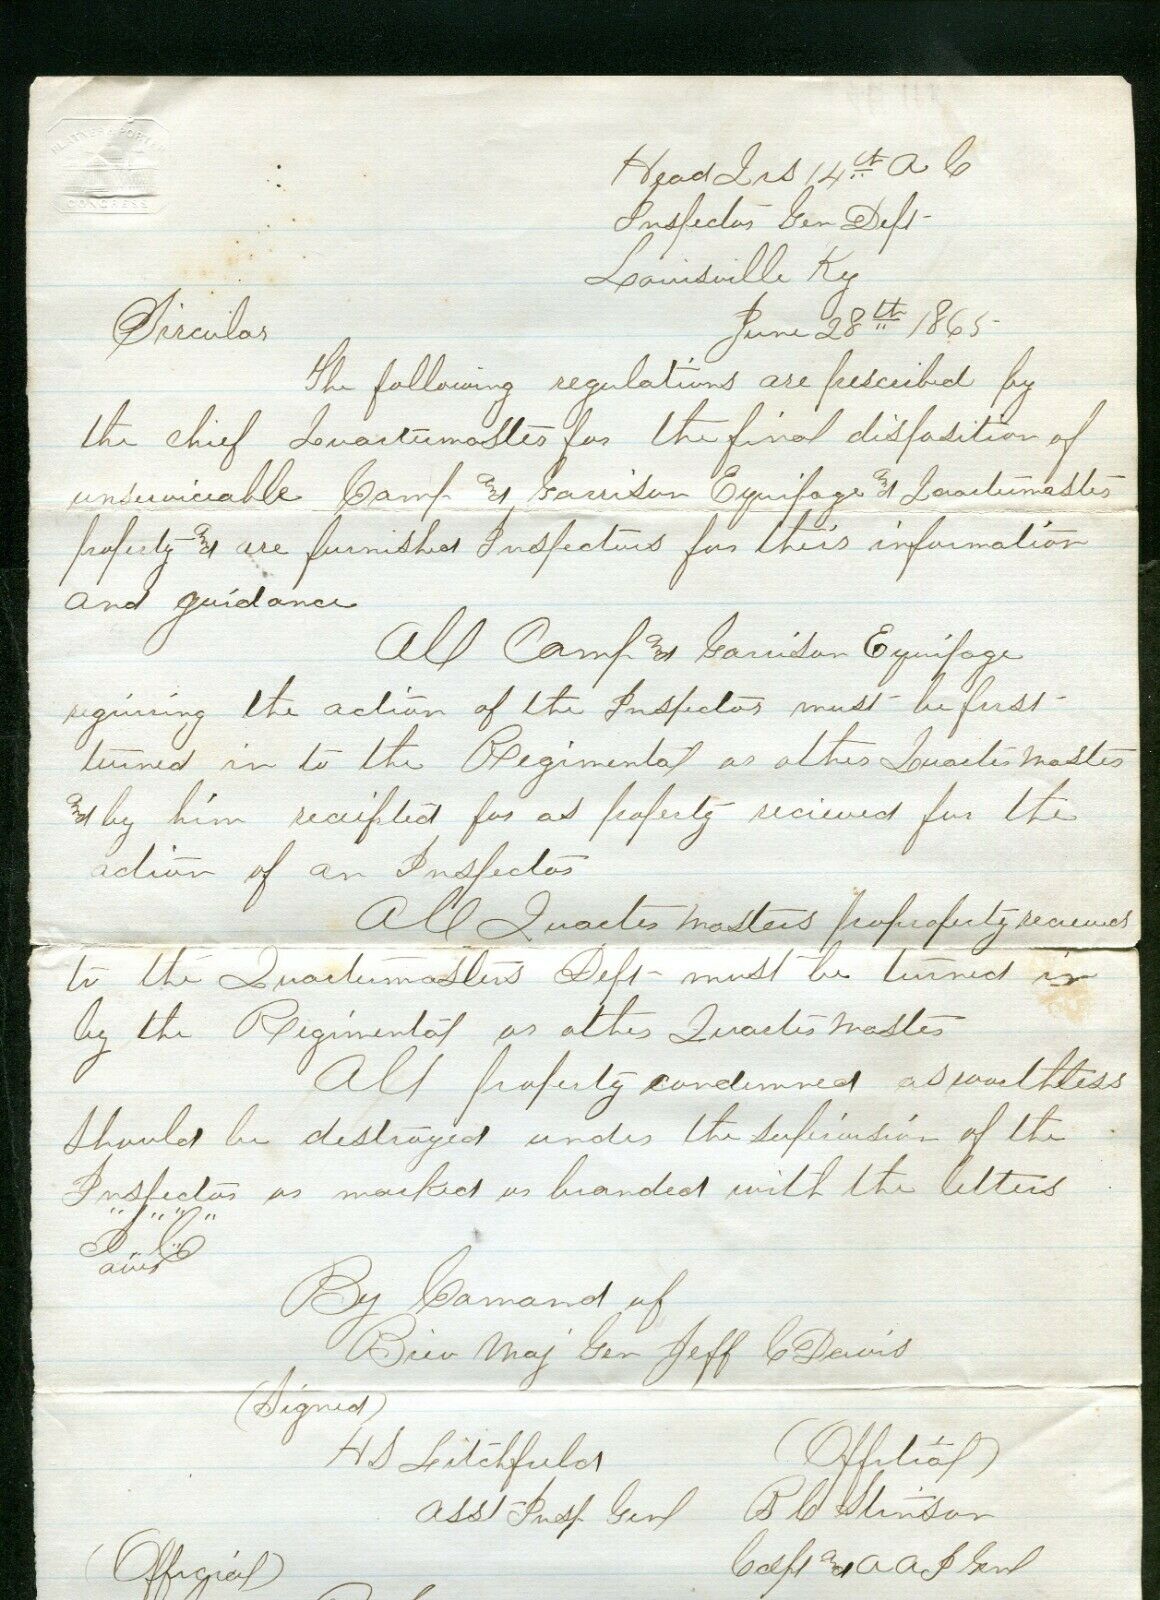 PLATNER & PORTER
CONGRESS
Head Qrs 14th A C
Inspector Gen Dept
Louisville Ky
Circular June 28th 1865
The following regulations are prescribed by
the chief Quartermaster for the final disposition of
unserviceable Camp and Garrison Equipage and Quartermasters
property and are furnished Inspectors for their information
and guidance
All Camp and Garrison Equipage
requiring the action of the Inspector must be first
turned in to the Regimental or other Quarter Master
and by him reciepted for as property recieved for the
action of an Inspector
All Quarter Masters proproperty recieved
to the Quartermasters Dept must be turned in
by the Regimental or other Quarter Master
All property condemned as worthless
should be destroyed under the supirvision of the
Inspector or marked or branded with the letters
I. C
By Comand of
Brev Maj Gen Jeff C Davis
(Signed)
H S Litchfield (Official)
Asst Insp Genl B C Stinson
(Official) Capt and A A I Genl